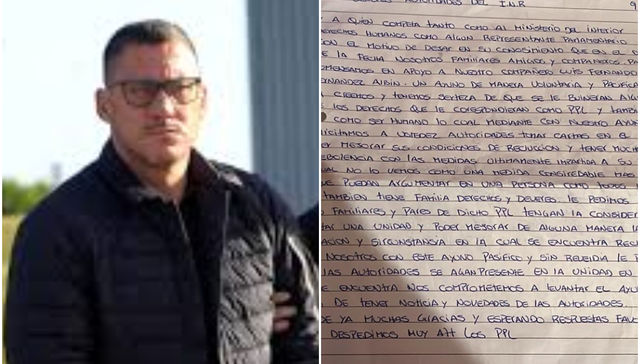 AUTORIDADES DEL I.N.R 9
A QUIEN COMPETA TANTO COMO AL MINISTERIO DEL INTERIOR
DERECHOS HUMANOS COMO ALGUN REPRESENTANTE PARLAMENTARIO
EL MOTIVO DE DESAR EN SU CONOSIMIENTO QUE EN EL D
LA FECHA NOSOTROS FAMILIARES AMIGOS Y COMPAÑEROS
COMENSAMOS EN APOYO A NUESTRO COMPAÑERO LUIS FERNANDO
FERNANDEZ ALBIN. UN AYUNO DE MANERA VOLUNTARIA Y PACIFICA
Y TENEMOS SERTEZA DE QUE SE LE
LOS DERECHOS QUE LE CORRESPONDERIAN COMO PPL Y
COMO SER HUMANO LO CUAL MEDIANTE CON NUESTRO AYUNO
SOLICITAMOS A USTEDEZ AUTORIDADES TOMAR CARTAS EN EL
MESORAR SUS CONDICIONES DE RECLUCION Y TENER MUCHA
CON LAS MEDIDAS ULTIMAMENTE A SU
NO LO VEMOS COMO UNA MEDIDA CONSIDERABLE MAS
QUE PUEDAN ARGUMENTAR EN UNA PERSONA COMO TODOS
TAMBIEN TIENE FAMILIA DERECHOS Y DEVERES. LE PEDIMOS
FAMILIARES Y PARES DE DICHO PPL TENGAN LA CONSIDE
UNA UNIDAD Y PODER MESORAR DE ALGUNA MANERA LA
Y SIRCUNSTANCIA EN LA CUAL SE ENCUENTRA
NOSOTROS CON ESTE AYUNO PASIFICO Y SIN REVELDIA LE
LAS AUTORIDADES SE AGAN PRESENTE EN LA UNIDAD EN
ENCUENTRA NOS COMPROMETEMOS A LEVANTAR EL AYU
DE TENER NOTICIA Y NOVEDADES DE LAS AUTORIDADES...
DE YA MUCHAS GRACIAS Y ESPERANDO RESPUESTAS
DESPEDIMOS MUY ATT LOS PPL